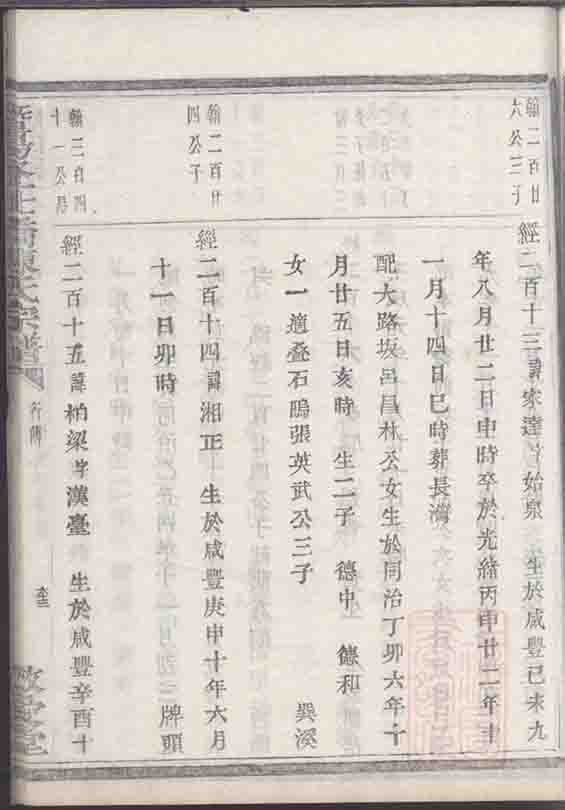 翰二百廿
六公三子
經二百十三諱家達字始泉 生於咸豐己未九
年八月廿二日申時卒於光緒丙申廿二年十
一月十四日巳時葬長灣
配大路坂呂昌林公女生於同治丁卯六年十
月廿五日亥時 生二子 德中 德和
女一適叠石鴫張英武公三子 巽溪
翰二百廿
四公子
經二百十四諱湘正 生於咸豐庚申十年六月
十一日卯時 牌頭
翰三百四
十一公長
經二百十五諱柏梁字漢臺 生於咸豐辛酉十
行傳